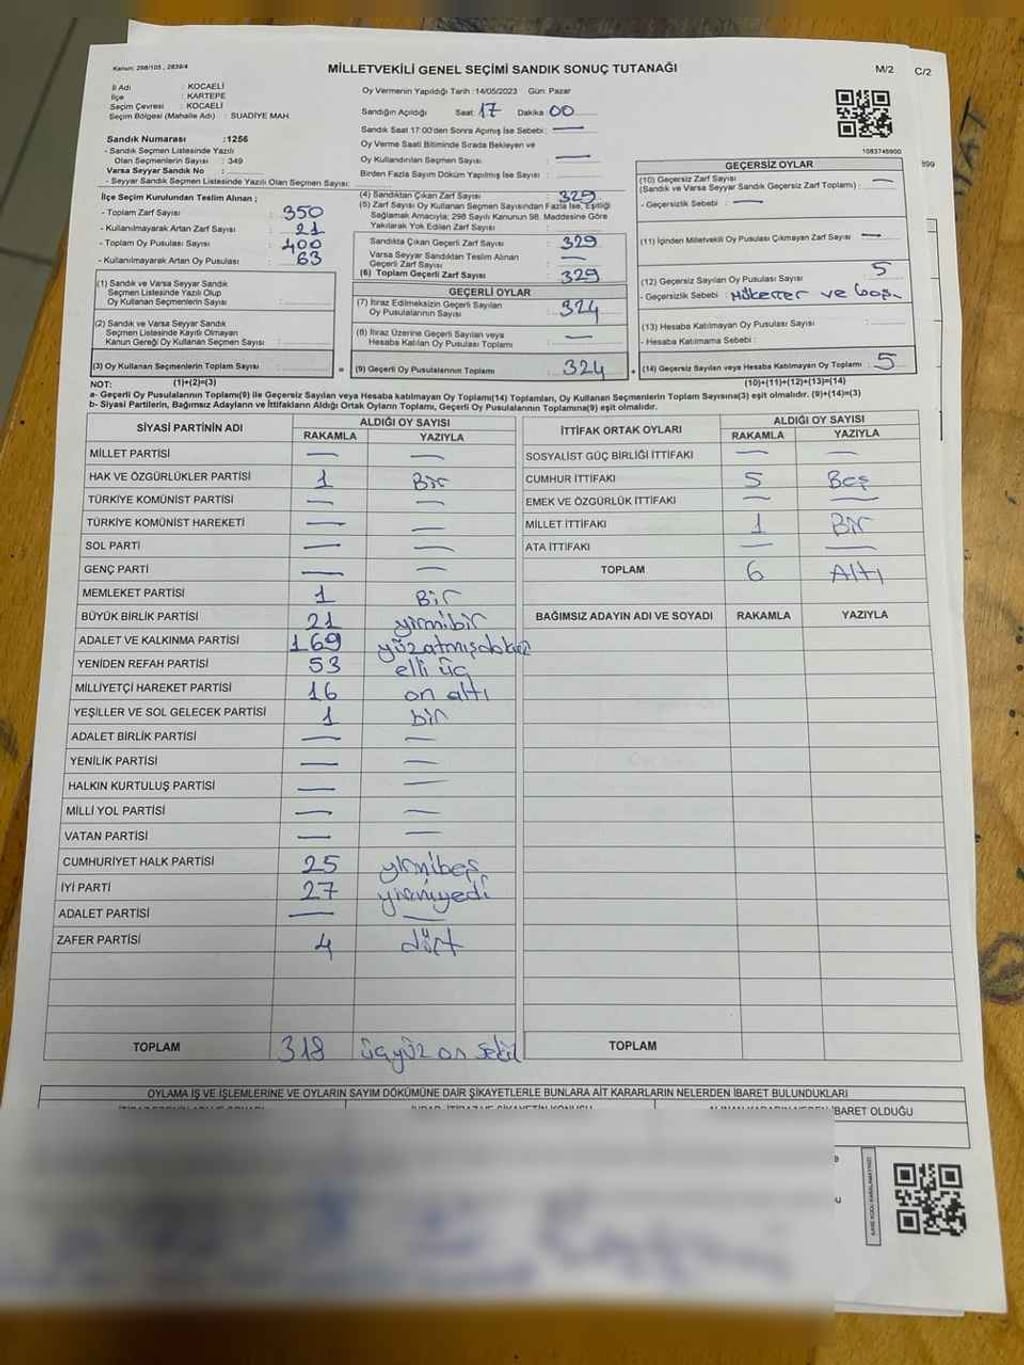 Kanun: 298/105 , 2839/4
MİLLETVEKİLİ GENEL SEÇİMİ SANDIK SONUÇ TUTANAĞI
M/2 C/2
İl Adı : KOCAELİ
İlçe : KARTEPE
Seçim Çevresi : KOCAELİ
Seçim Bölgesi (Mahalle Adı) : SUADİYE MAH.
Sandık Numarası :1256
- Sandık Seçmen Listesinde Yazılı
Olan Seçmenlerin Sayısı : 349
Varsa Seyyar Sandık No :
- Seyyar Sandık Seçmen Listesinde Yazılı Olan Seçmen Sayısı:
İlçe Seçim Kurulundan Teslim Alınan ;
- Toplam Zarf Sayısı : 350
- Kullanılmayarak Artan Zarf Sayısı : 21
- Toplam Oy Pusulası Sayısı : 400
- Kullanılmayarak Artan Oy Pusulası : 63
(1) Sandık ve Varsa Seyyar Sandık
Seçmen Listesinde Yazılı Olup
Oy Kullanan Seçmenlerin Sayısı :
(2) Sandık ve Varsa Seyyar Sandık
Seçmen Listesinde Kayıtlı Olmayan
Kanun Gereği Oy Kullanan Seçmen Sayısı :
(3) Oy Kullanan Seçmenlerin Toplam Sayısı :
Oy Vermenin Yapıldığı Tarih : 14/05/2023 Gün: Pazar
Sandığın Açıldığı Saat: 17 Dakika 00
Sandık Saat 17:00'den Sonra Açılmış İse Sebebi : —
Oy Verme Saati Bitiminde Sırada Bekleyen ve
Oy Kullandırılan Seçmen Sayısı : —
Birden Fazla Sayım Döküm Yapılmış İse Sayısı :
(4) Sandıktan Çıkan Zarf Sayısı : 329
(5) Zarf Sayısı Oy Kullanan Seçmen Sayısından Fazla İse, Eşitliği
Sağlamak Amacıyla; 298 Sayılı Kanunun 98. Maddesine Göre
Yakılarak Yok Edilen Zarf Sayısı :
Sandıkta Çıkan Geçerli Zarf Sayısı : 329
Varsa Seyyar Sandıktan Teslim Alınan
Geçerli Zarf Sayısı : —
(6) Toplam Geçerli Zarf Sayısı : 329
GEÇERLİ OYLAR
(7) İtiraz Edilmeksizin Geçerli Sayılan
Oy Pusulalarının Sayısı : 324
(8) İtiraz Üzerine Geçerli Sayılan veya
Hesaba Katılan Oy Pusulası Toplamı : —
= (9) Geçerli Oy Pusulalarının Toplamı : 324
1083745900
GEÇERSİZ OYLAR
(10) Geçersiz Zarf Sayısı
(Sandık ve Varsa Seyyar Sandık Geçersiz Zarf Toplamı) : —
- Geçersizlik Sebebi : —
(11) İçinden Milletvekili Oy Pusulası Çıkmayan Zarf Sayısı : —
(12) Geçersiz Sayılan Oy Pusulası Sayısı : 5
- Geçersizlik Sebebi : Mükerrer ve boş
(13) Hesaba Katılmayan Oy Pusulası Sayısı :
- Hesaba Katılmama Sebebi :
+ (14) Geçersiz Sayılan veya Hesaba Katılmayan Oy Toplamı : 5
NOT: (1)+(2)=(3) (10)+(11)+(12)+(13)=(14)
a- Geçerli Oy Pusulasının Toplamı(9) ile Geçersiz Sayılan veya Hesaba katılmayan Oy Toplamı(14) Toplamları, Oy Kullanan Seçmenlerin Toplam Sayısına(3) eşit olmalıdır. (9)+(14)=(3)
b- Siyasi Partilerin, Bağımsız Adayların ve İttifakların Aldığı Ortak Oyların Toplamı, Geçerli Oy Pusulalarının Toplamına(9) eşit olmalıdır.
SİYASİ PARTİNİN ADI ALDIĞI OY SAYISI
RAKAMLA YAZIYLA
MİLLET PARTİSİ — —
HAK VE ÖZGÜRLÜKLER PARTİSİ 1 Bir
TÜRKİYE KOMÜNİST PARTİSİ — —
TÜRKİYE KOMÜNİST HAREKETİ — —
SOL PARTİ — —
GENÇ PARTİ — —
MEMLEKET PARTİSİ 1 Bir
BÜYÜK BİRLİK PARTİSİ 21 yirmibir
ADALET VE KALKINMA PARTİSİ 169 yüzatmışdokuz
YENİDEN REFAH PARTİSİ 53 elli üç
MİLLİYETÇİ HAREKET PARTİSİ 16 on altı
YEŞİLLER VE SOL GELECEK PARTİSİ 1 bir
ADALET BİRLİK PARTİSİ — —
YENİLİK PARTİSİ — —
HALKIN KURTULUŞ PARTİSİ — —
MİLLİ YOL PARTİSİ — —
VATAN PARTİSİ — —
CUMHURİYET HALK PARTİSİ 25 yirmibeş
İYİ PARTİ 27 yirmiyedi
ADALET PARTİSİ — —
ZAFER PARTİSİ 4 dört
TOPLAM 318 üçyüz on sekiz
İTTİFAK ORTAK OYLARI ALDIĞI OY SAYISI
RAKAMLA YAZIYLA
SOSYALİST GÜÇ BİRLİĞİ İTTİFAKI — —
CUMHUR İTTİFAKI 5 Beş
EMEK VE ÖZGÜRLÜK İTTİFAKI — —
MİLLET İTTİFAKI 1 Bir
ATA İTTİFAKI — —
TOPLAM 6 Altı
BAĞIMSIZ ADAYIN ADI VE SOYADI RAKAMLA YAZIYLA
TOPLAM
OYLAMA İŞ VE İŞLEMLERİNE VE OYLARIN SAYIM DÖKÜMÜNE DAİR ŞİKAYETLERLE BUNLARA AİT KARARLARIN NELERDEN İBARET BULUNDUKLARI
İBARET OLDUĞU